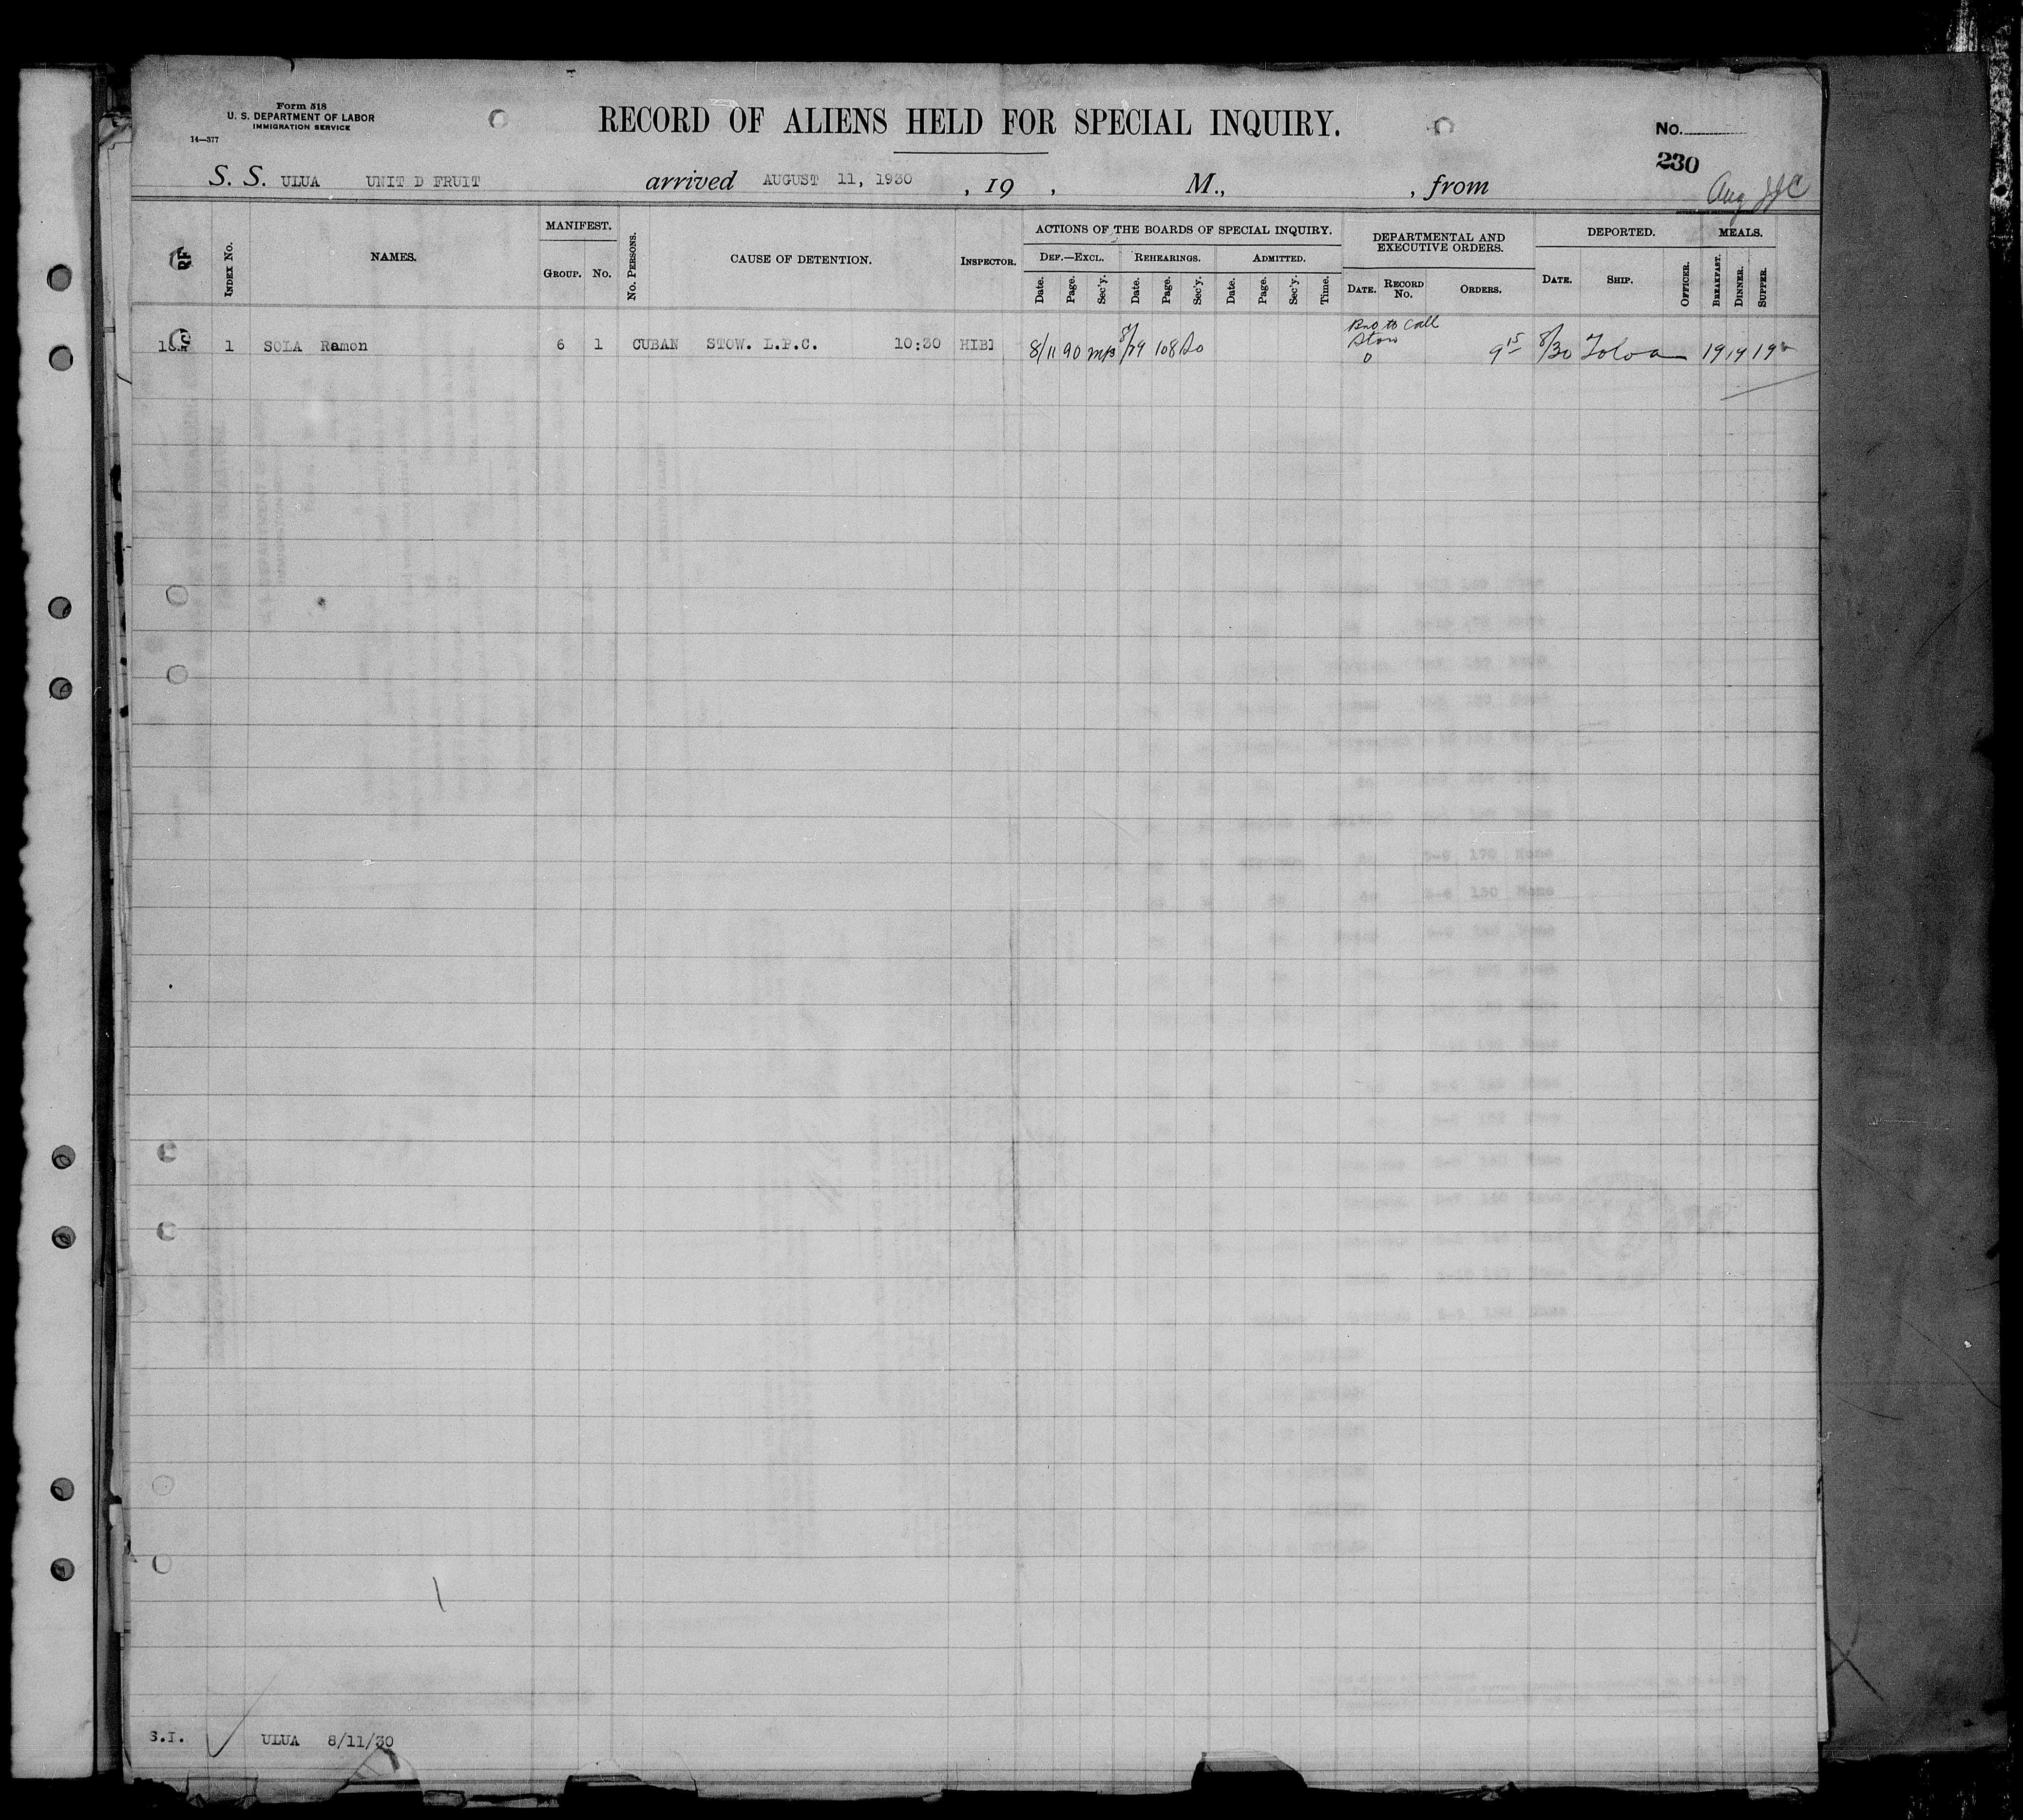 Form 518
U. S. DEPARTMENT OF LABOR
IMMIGRATION SERVICE
14—377
RECORD OF ALIENS HELD FOR SPECIAL INQUIRY.
No.
230
S. S. ULUA UNIT D FRUIT arrived AUGUST 11, 1930 , 19 , M., , from
Aug
INDEX No.
NAMES.
MANIFEST.
GROUP. No.
No. PERSONS.
CAUSE OF DETENTION.
INSPECTOR.
ACTIONS OF THE BOARDS OF SPECIAL INQUIRY.
DEF.—EXCL. REHEARINGS. ADMITTED.
Date. Page. Sec'y. Date. Page. Sec'y. Date. Page. Sec'y. Time.
DEPARTMENTAL AND
EXECUTIVE ORDERS.
DATE. RECORD No. ORDERS.
DEPORTED.
DATE. SHIP. OFFICER.
MEALS.
BREAKFAST. DINNER. SUPPER.
1 SOLA Ramon 6 1 CUBAN STOW. L.P.C. 10:30 HIBI 8/11 90 MB 8/29 108 Do to Call Stow 9 15 8/30 Toloa 19 19 19
S.I. ULUA 8/11/30